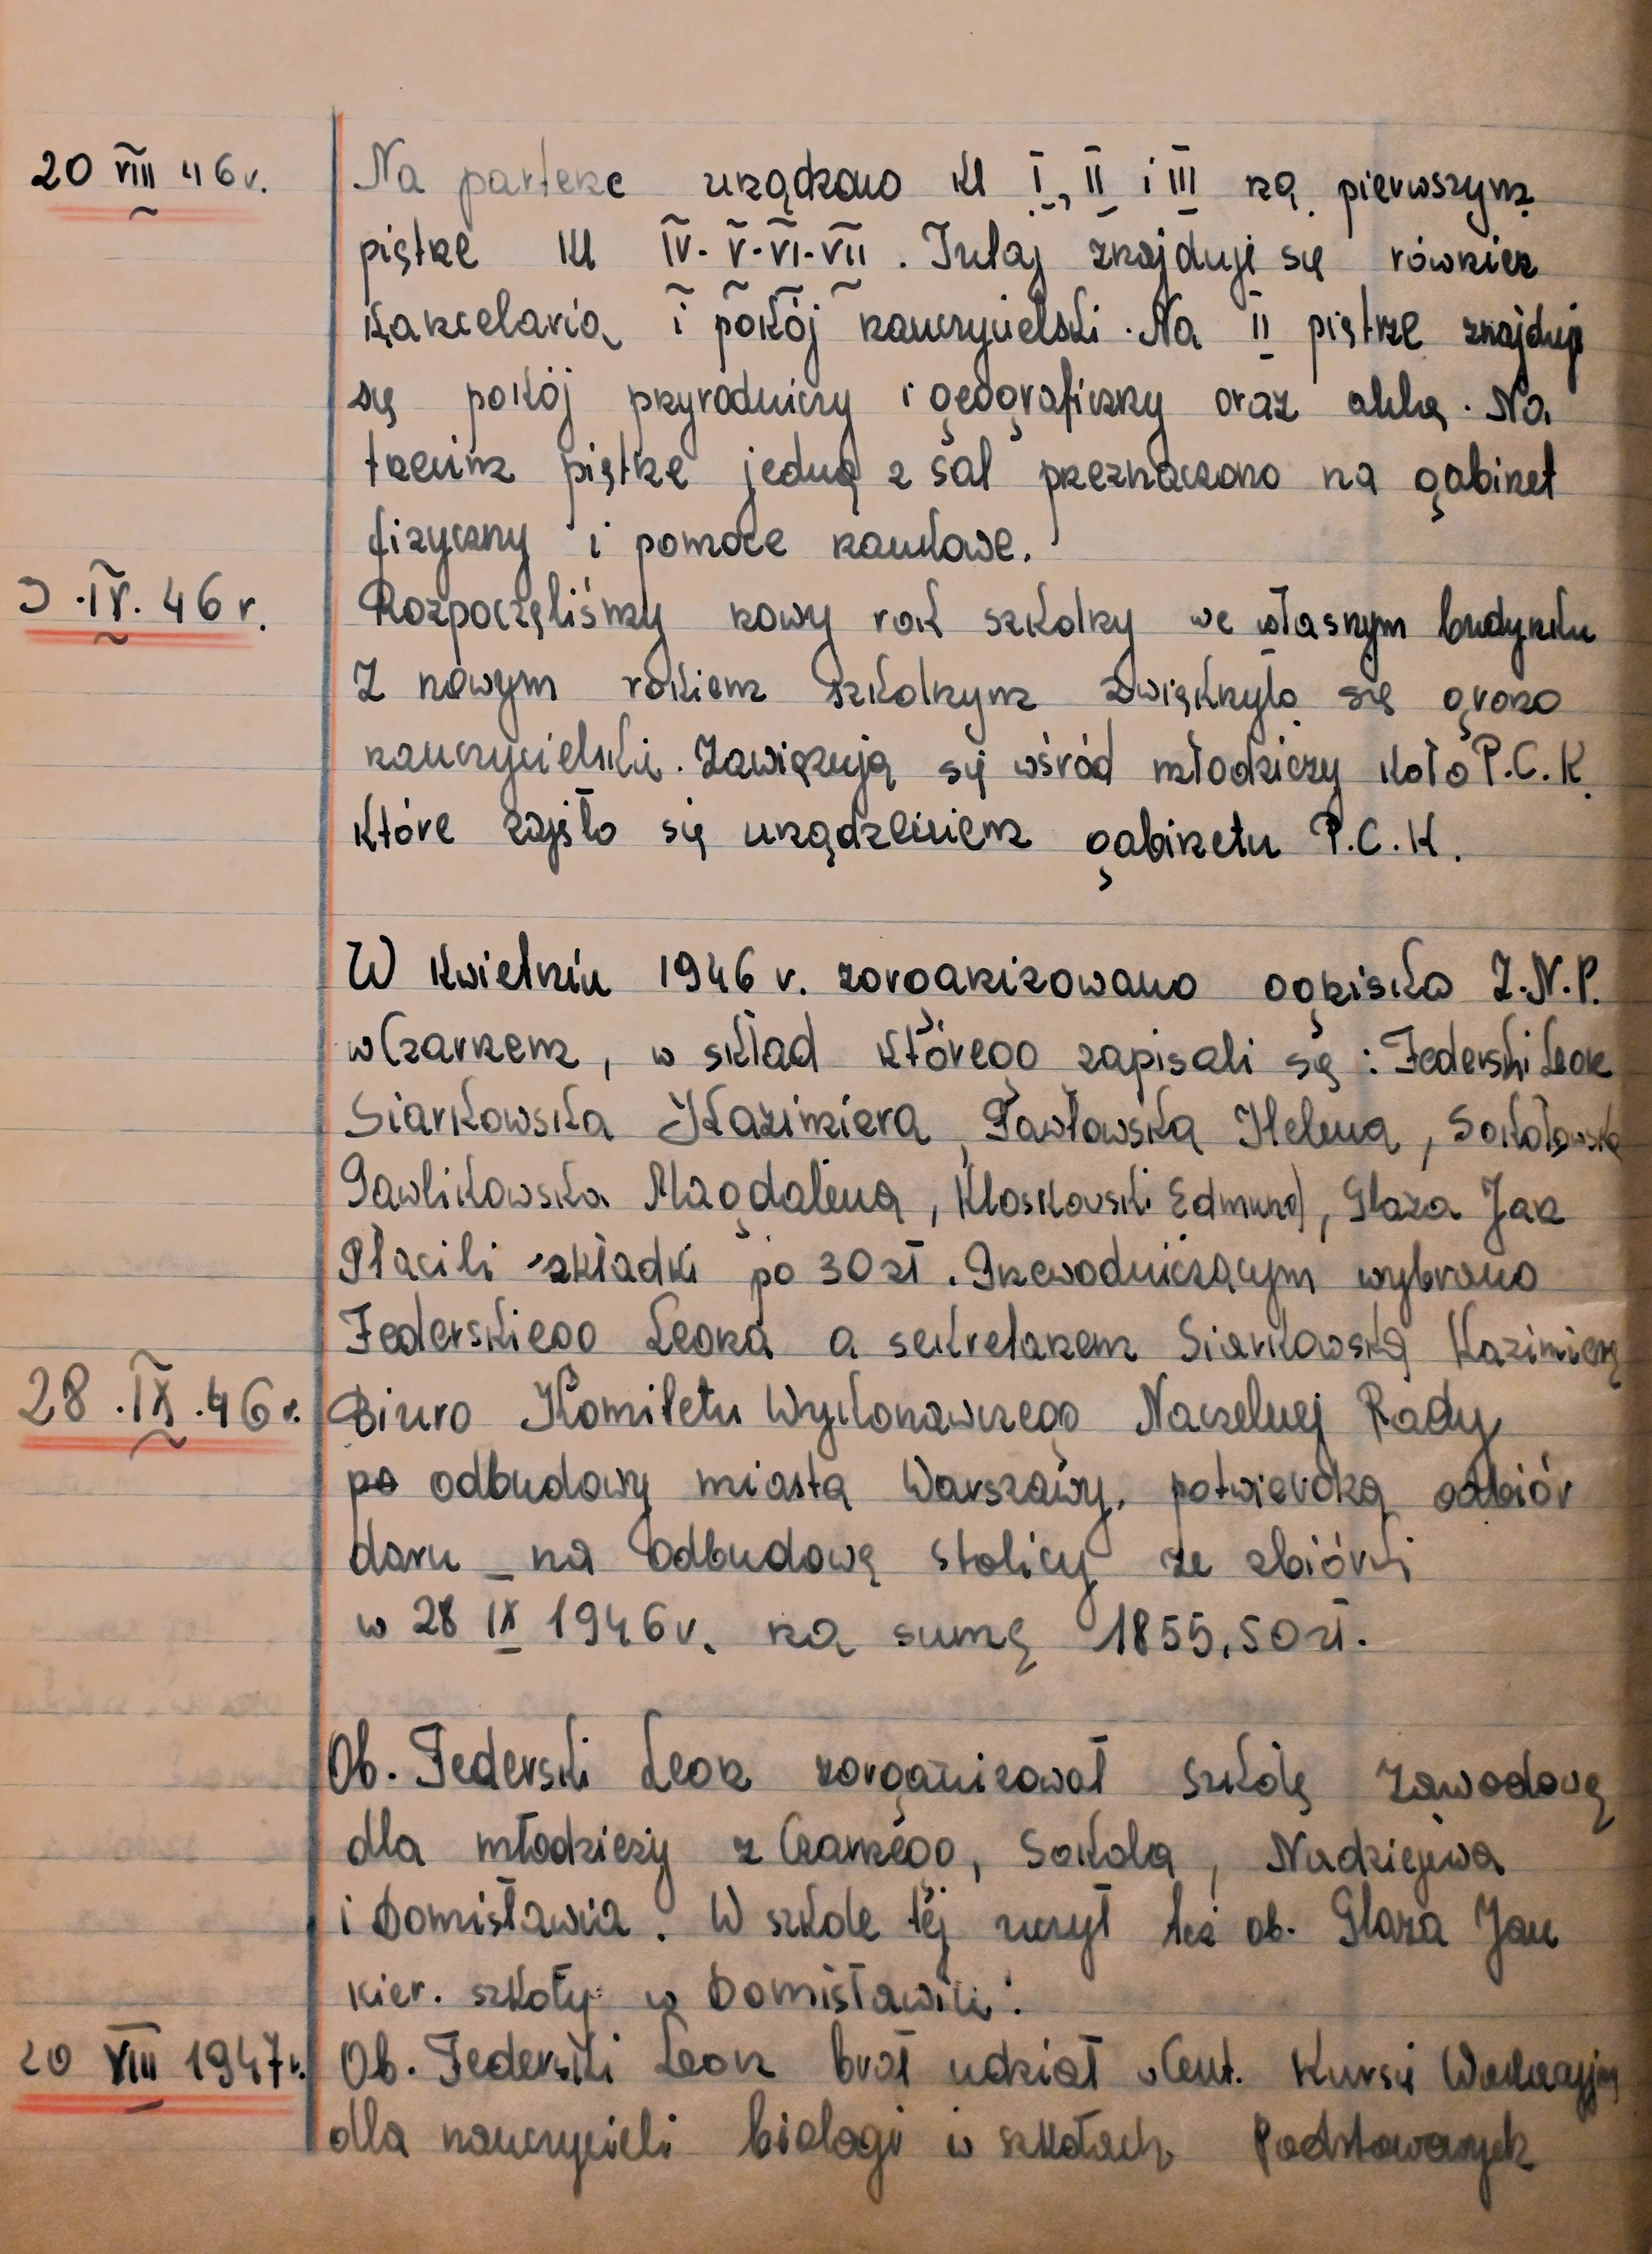 20 VIII 46 r. Na parterze urządzono kl I, II i III na pierwszym
piętrze kl IV. V. VI. VII. Tutaj znajduje się również
kancelaria i pokój nauczycielski. Na II piętrze znajduje
się pokój przyrodniczy i geograficzny oraz Na
trzecim piętrze jedną z sal przeznaczono na gabinet
fizyczny i pomoce naukowe.
IX. 46 r. Rozpoczęliśmy nowy rok szkolny we własnym budynku
Z nowym rokiem szkolnym zwiększyło się grono
nauczycielskie. Zawiązują się wśród młodzieży koło P.C.K.
które zajęło się urządzeniem gabinetu P.C.K.
W kwietniu 1946 r. zorganizowano ognisko Z.N.P.
w Czarnem, w skład którego zapisali się: Federski Leon
Siarkowska Kazimiera, Pawłowska Helena, Sokołowska
Pawlikowska Magdalena, Kloskowski Edmund, Glaza Jan
Płacili składki po 30 zł. Przewodniczącym wybrano
Federskiego Leona a sekretarzem Siarkowską Kazimierę
28. IX. 46 r. Biuro Komitetu Wykonawczego Naczelnej Rady
po odbudowy miasta Warszawy, potwierdza odbiór
daru na odbudowę stolicy ze zbiórki
w 28 IX 1946 r. na sumę 1855,50 zł.
Ob. Federski Leon zorganizował szkołę zawodową
dla młodzieży z Czarnego, Sokola, Nadziejewa
i Domisławia. W szkole tej uczył też ob. Glaza Jan
kier. szkoły w Domisławiu.
20 VIII 1947 r. Ob. Federski Leon brał udział w Cent. Kursie Wakacyjnym
dla nauczycieli biologi w szkołach Podstawowych